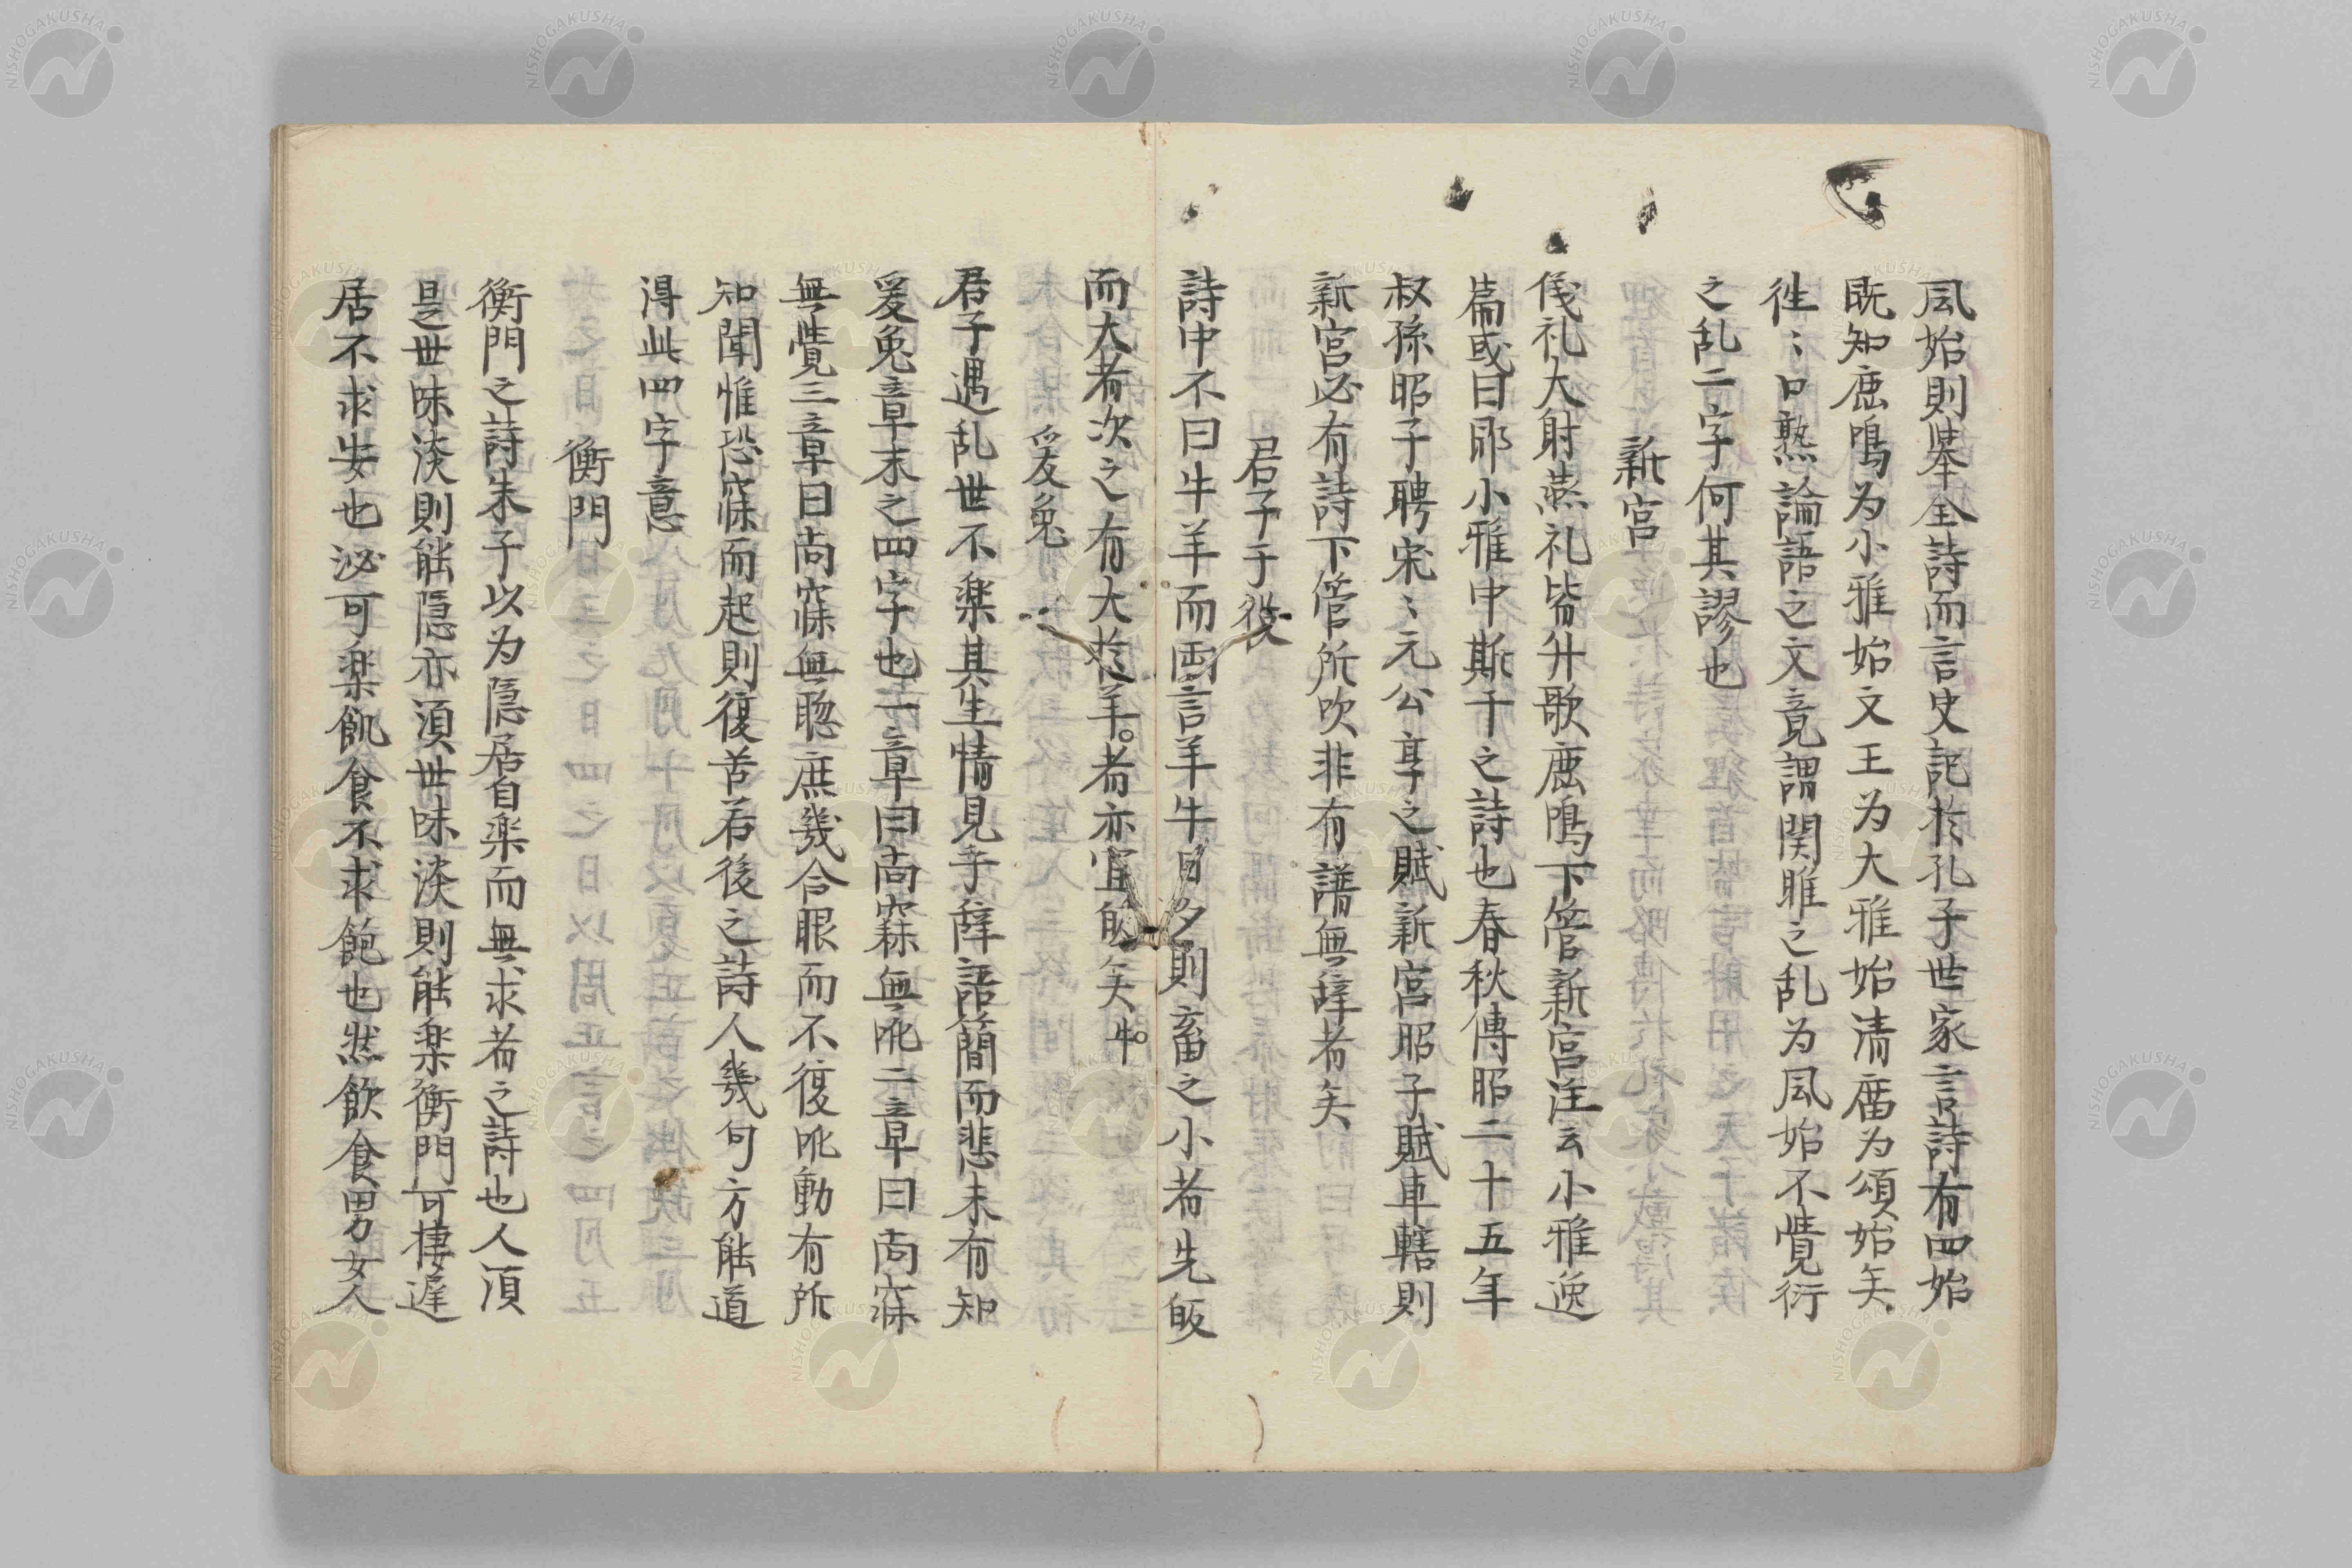 風始則挙全詩而言史記於孔子世家言詩有四始
既知鹿鳴为小雅始文王为大雅始清庿为頌始矣
徃〻口熟論語之文竟謂関雎之乱为風始不覺衍
之乱二字何其謬也
新宮
儀礼大射燕礼皆升歌鹿鳴下管新宮注云小雅逸
篇或曰即小雅中斯干之詩也春秋傳昭二十五年
叔孫昭子聘宋〻元公享之賦新宮昭子賦車轄則
新宮必有詩下管所吹非有譜無辞者矣
君子于役
詩中不曰牛羊而両言羊牛日夕則畜之小者先皈
而大者次之有大於羊。者亦宜皈矣牛。
爰兎
君子遇乱世不楽其生情見乎辞語簡而悲未有知
爰兎章末之四字也一章曰尚寐無吪二章曰尚寐
無覺三章曰尚寐無聡庶幾合眼而不復吪動有所
知聞惟恐寐而起則復苦若後之詩人幾句方能道
得此四字意
衡門
衡門之詩朱子以为隠居自楽而無求者之詩也人須
是世味淡則能隠亦須世味淡則能楽衡門可棲遅
居不求安也泌可楽飢食不求飽也然飲食男女人
NISHOGAKUSHA